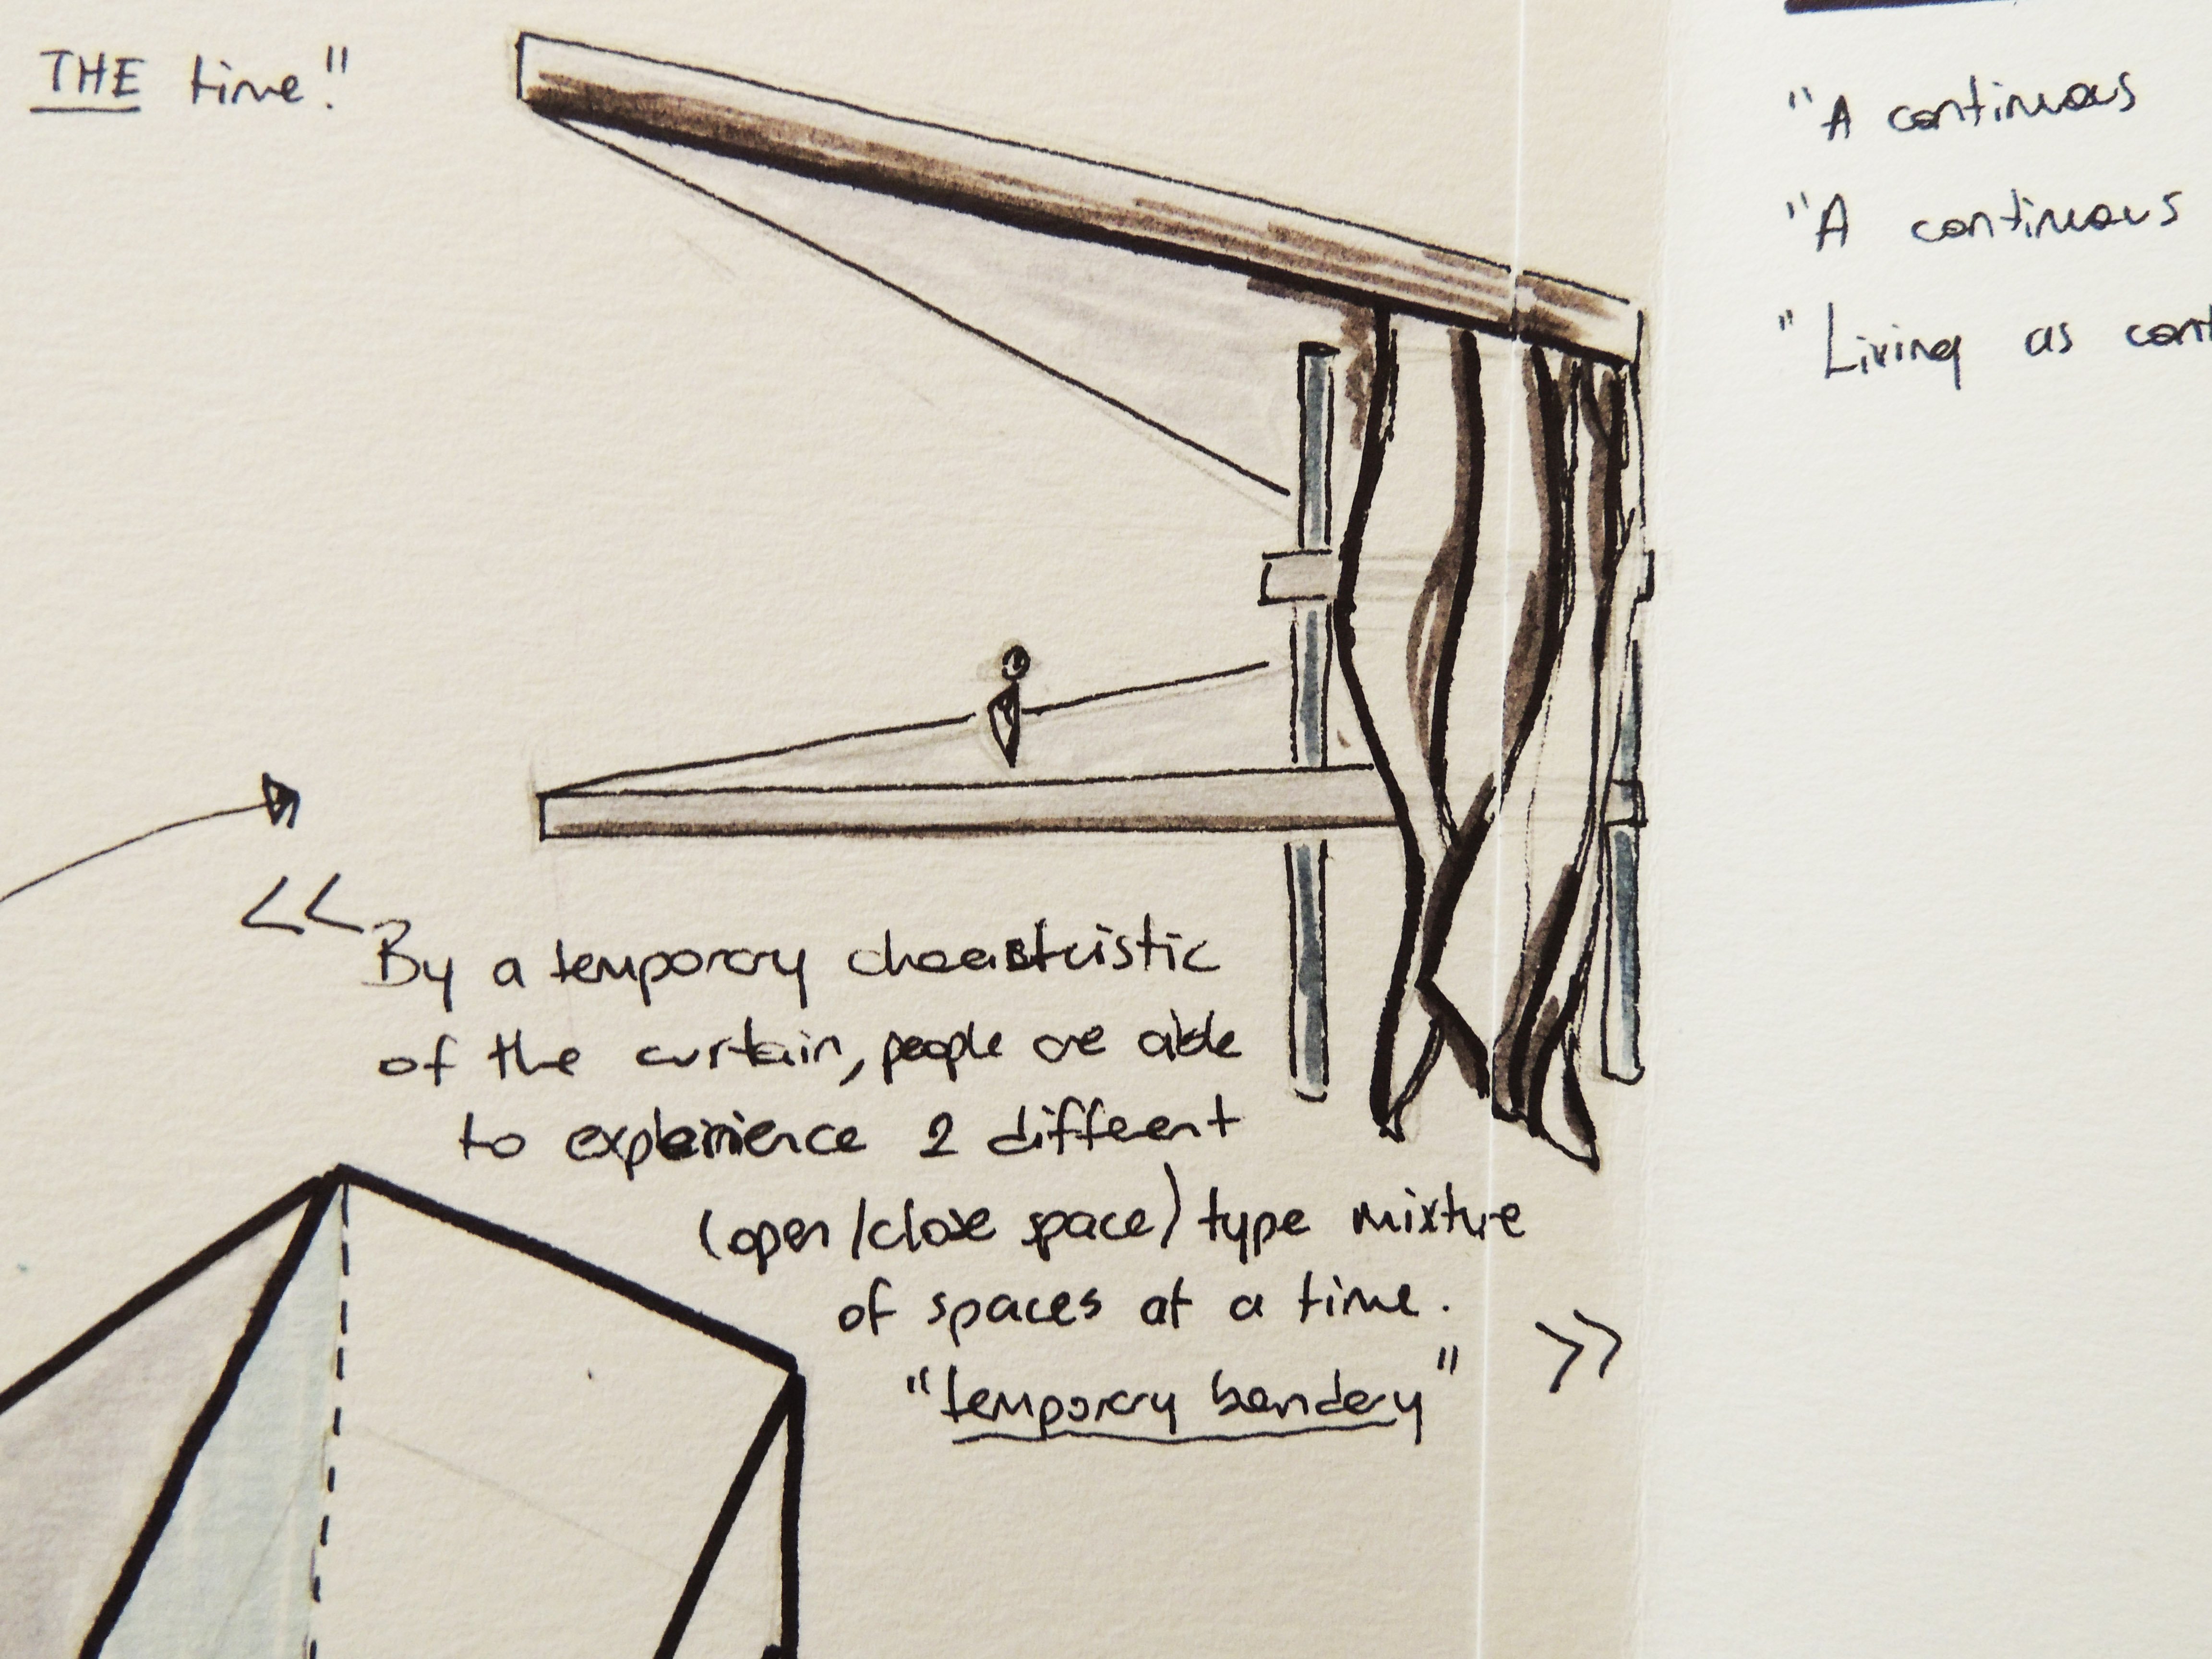 THE time!"
<< By a temporary charactristic
of the curtain, people are able
to experience 2 different
(open/close space) type mixture
of spaces at a time.
"temporary bondery" >>
"A continuous
"A continuous
"Living as cont